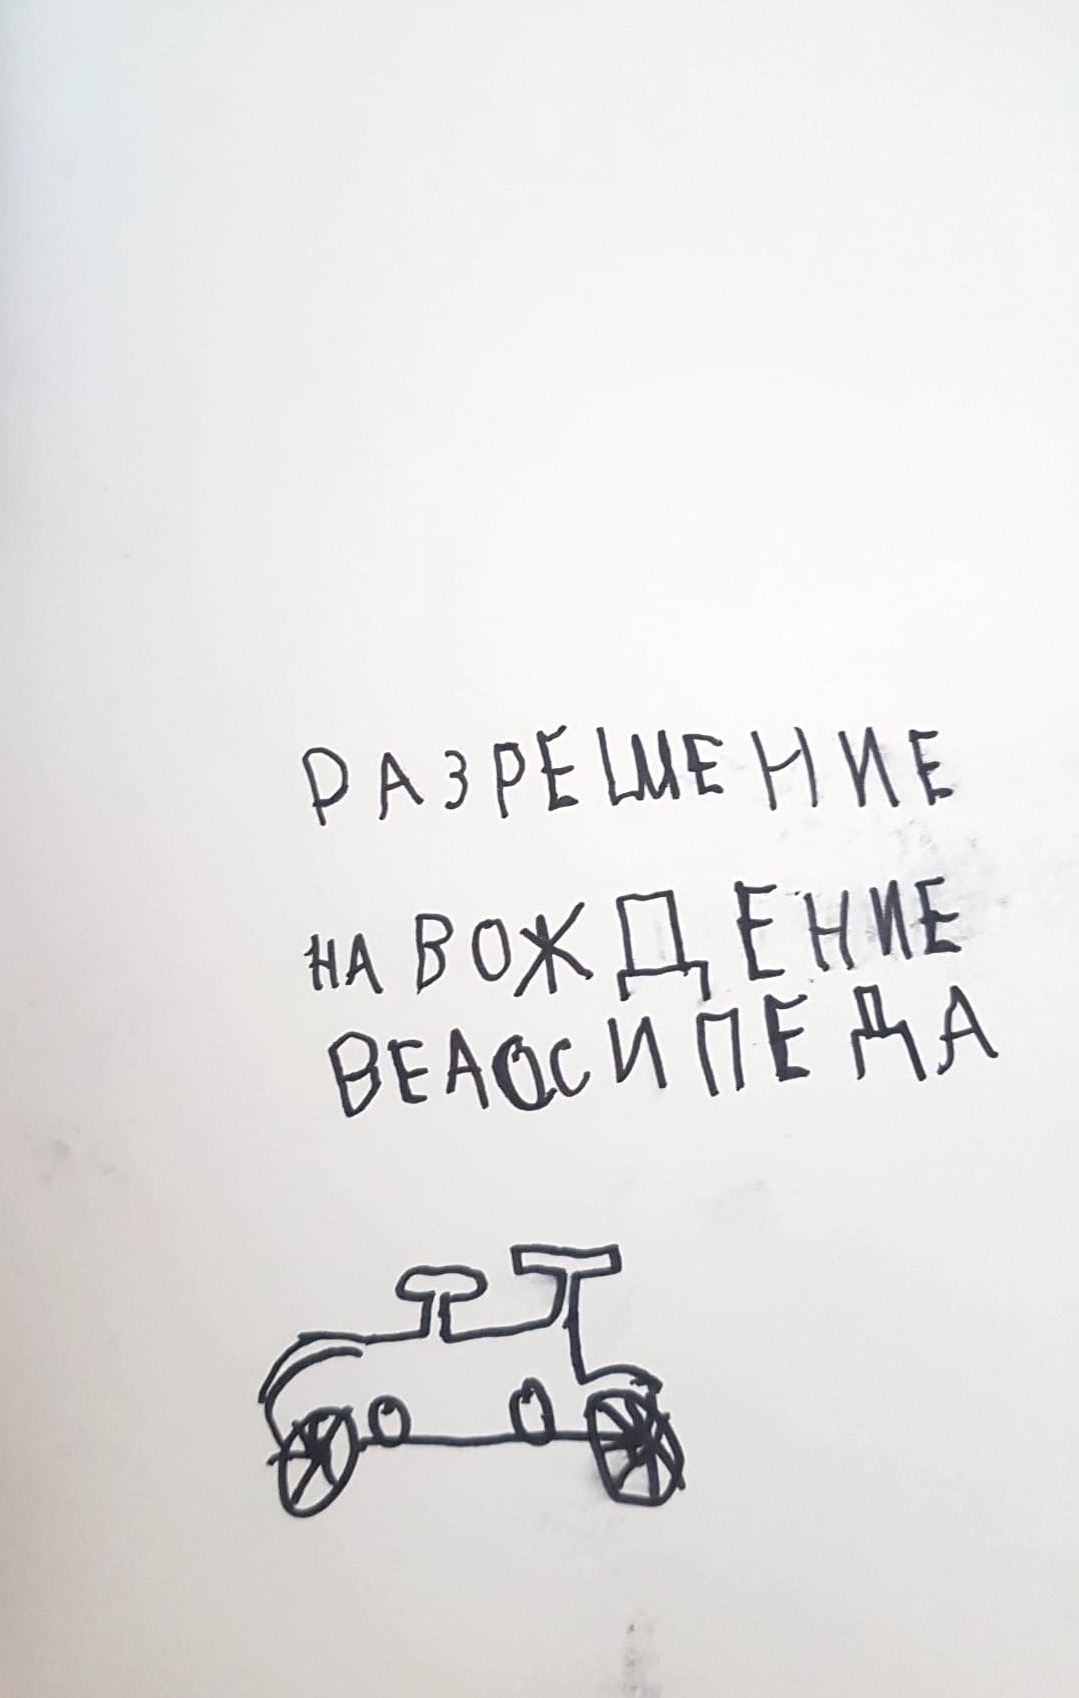 РАЗРЕШЕНИЕ
НА ВОЖДЕНИЕ
ВЕЛОСИПЕДА